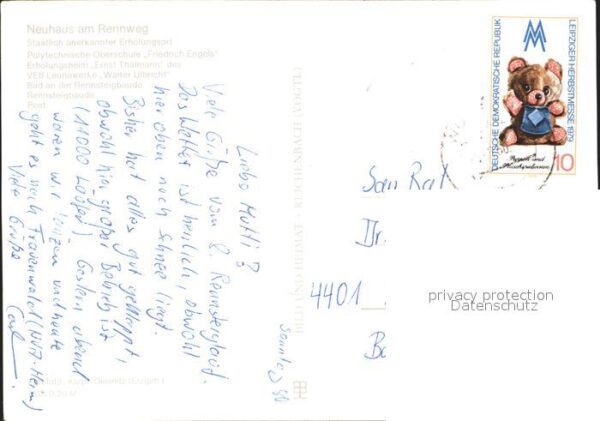 Neuhaus am Rennweg
Staatlich anerkannter Erholungsort
Polytechnische Oberschule „Friedrich Engels"
Erholungsheim „Ernst Thälmann" des
VEB Leunawerke „Walter Ulbricht"
Bad an der Rennsteigbaude
Rennsteigbaude
Post
Liebe Mutti!
Viele Grüße vom 8. Rennsteiglauf.
Das Wetter ist herrlich, obwohl
hier oben noch Schnee liegt.
Bisher hat alles gut geklappt,
obwohl hier großer Betrieb ist
(11000 Läufer). Gestern abend
waren wir tanzen und heute
geht es nach Frauenwald (NVA-Heim)
Viele Grüße
BILD UND HEIMAT REICHENBACH (VOGTL)
San Rat
Dr.
4401
DEUTSCHE DEMOKRATISCHE REPUBLIK
LEIPZIGER HERBSTMESSE 1979
Puppen und
Plüschspielwaren
10
privacy protection
Datenschutz